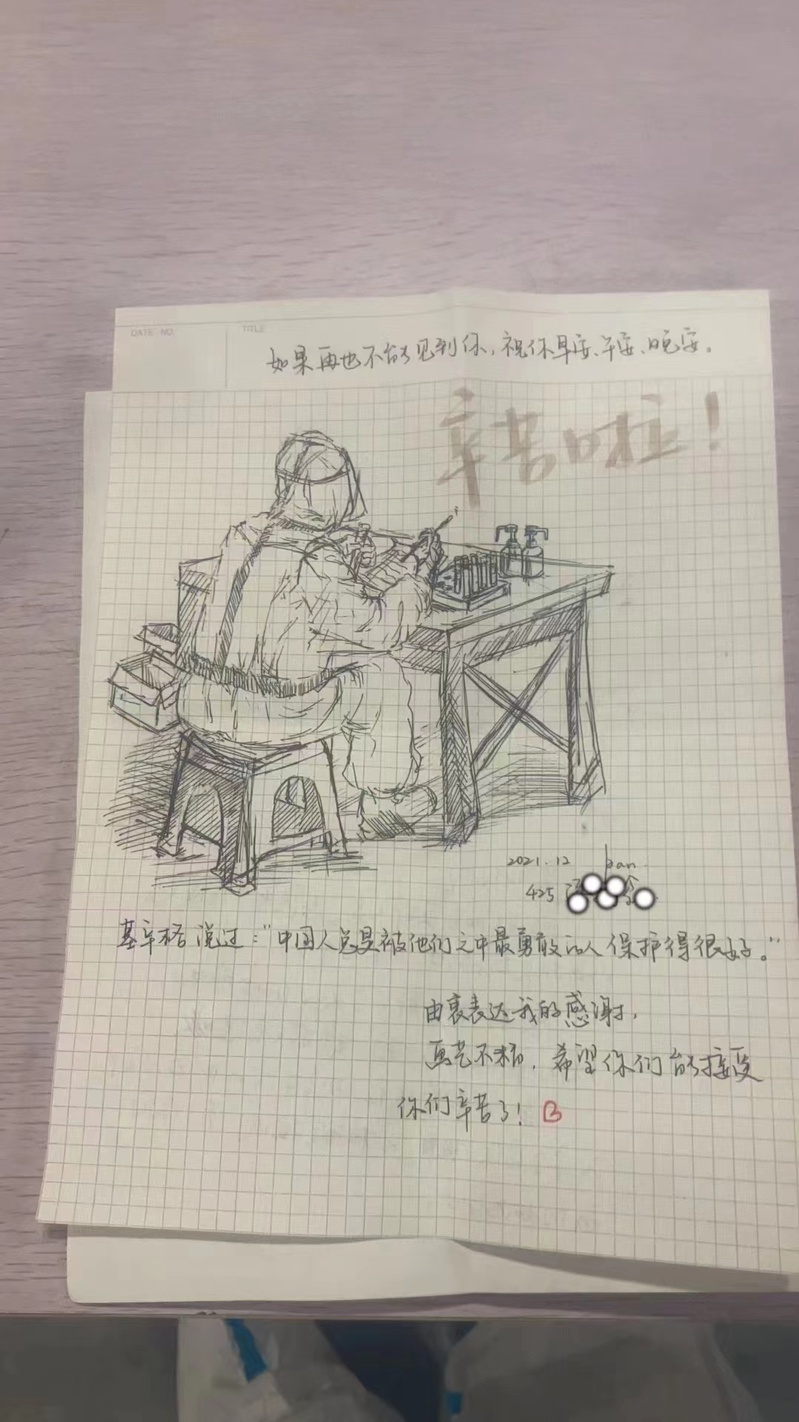 DATE NO.
TITLE
如果再也不能见到你，祝你早安、午安、晚安。
辛苦啦！
2021.12 ban.
425
基辛格说过："中国人总是被他们之中最勇敢的人保护得很好。"
由衷表达我的感谢，
画艺不精，希望你们能接受
你们辛苦了！